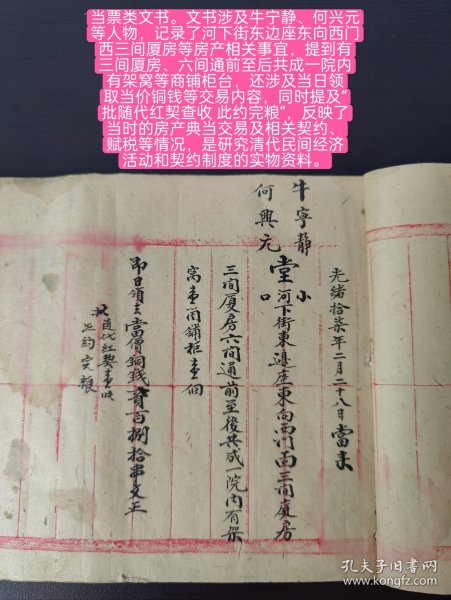 当票类文书。文书涉及牛宁静、何兴元
等人物,记录了河下街东边座东向西门
西三间厦房等房产相关事宜,提到有
三间厦房、六间通前至后共成一院内
有架窝等商铺柜台,还涉及当日领
取当价铜钱等交易内容,同时提及“
批随代红契查收 此约完粮”,反映了
当时的房产典当交易及相关契约、
赋税等情况,是研究清代民间经济
活动和契约制度的实物资料。
光緒拾柒年二月二十八日當来
牛寧静
何興元
堂
小
口
河下街東邊座東向西門面三間廈房
三間厦房六間通前至後共成一院内有架
窩壹間鋪柜壹個
即日領去當價銅錢貳百捌拾串文正
批随代红契查收
此約完粮
孔夫子旧书网
www.kongfz.com